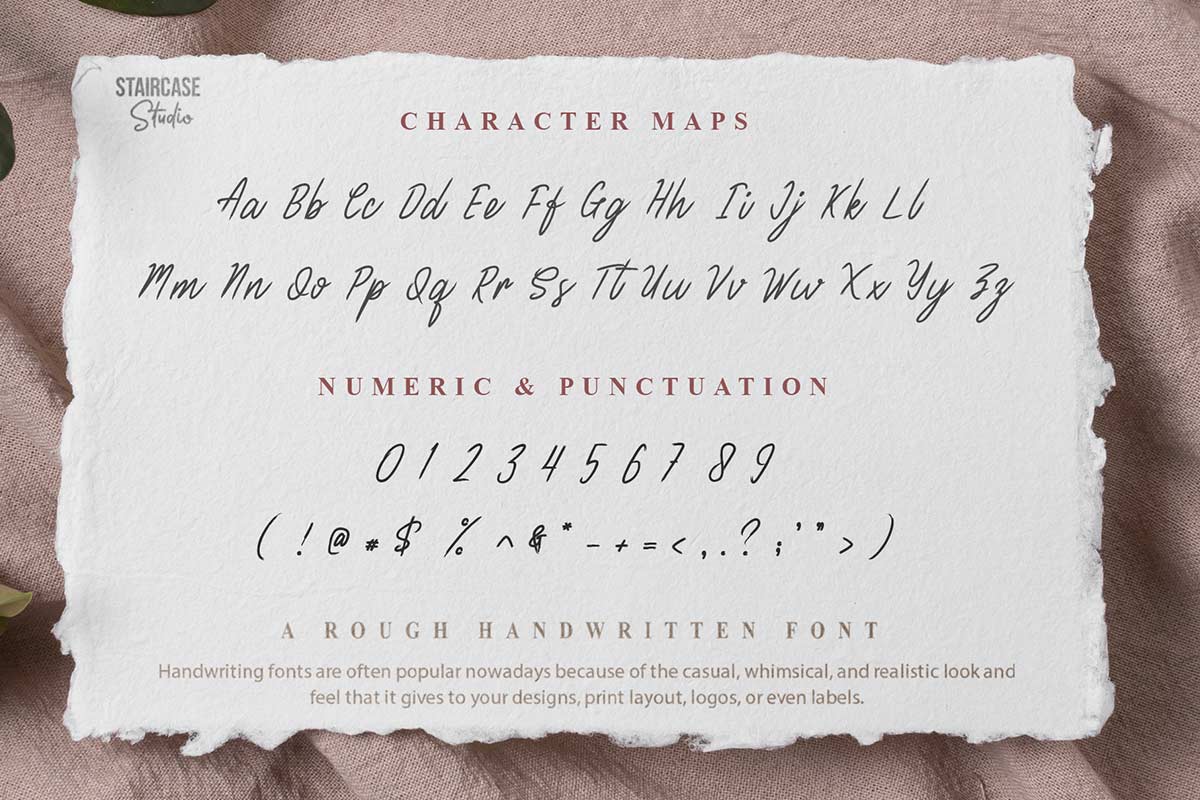 STAIRCASE
Studio
CHARACTER MAPS
Aa Bb Cc Dd Ee Ff Gg Hh Ii Jj Kk Ll
Mm Nn Oo Pp Qq Rr Ss Tt Uu Vv Ww Xx Yy Zz
NUMERIC & PUNCTUATION
0 1 2 3 4 5 6 7 8 9
( ! @ # $ % ^ & * - + = < , . ? ; ' " > )
A ROUGH HANDWRITTEN FONT
Handwriting fonts are often popular nowadays because of the casual, whimsical, and realistic look and
feel that it gives to your designs, print layout, logos, or even labels.